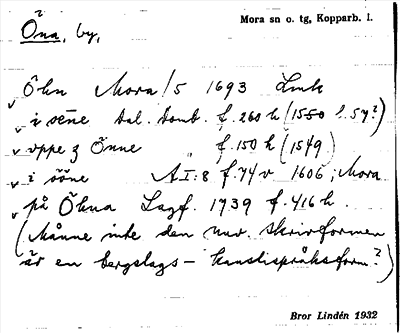 Mora sn o. tg, Kopparb. l.
Öna, by,
Öhn Mora/5 1693 Lmk
v i sene Dal. Domb. f. 260 h (1550 l. 54?)
v vppe z Önne " f. 150 h (1549)
v i ööne A I:8 f. 74 v 1606; Mora
v på Öhna Lagf. 1739 f. 416 h.
(Månne inte den nuv. skrivformen
är en bergslags- kanslispråksform?)
Bror Lindén 1932